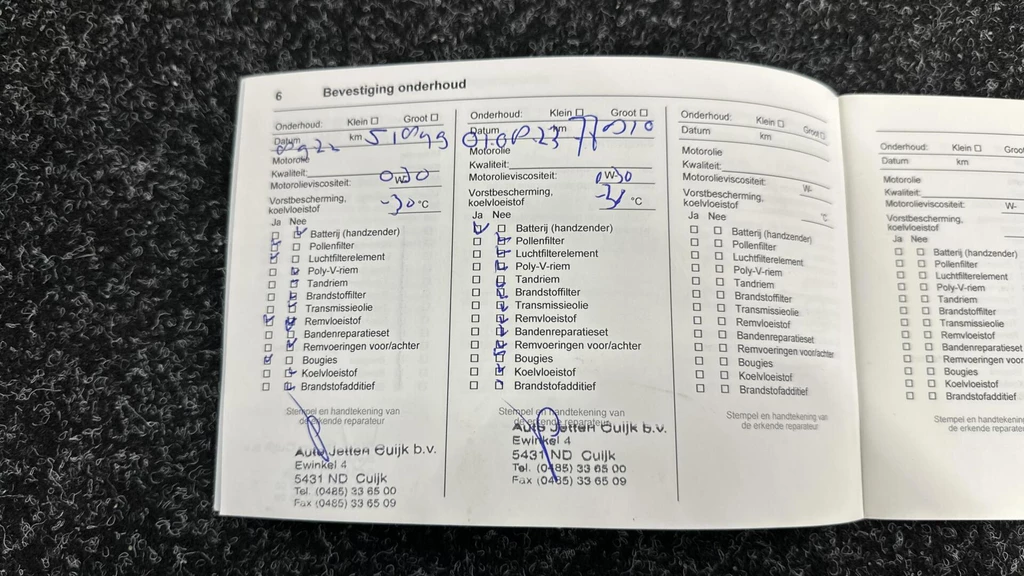 6 Bevestiging onderhoud
Onderhoud: Klein Groot
Datum km 51099
Motorolie
Kwaliteit:
Motorolieviscositeit: 0W30
Vorstbescherming,
koelvloeistof -30 °C
Ja Nee
Batterij (handzender)
Pollenfilter
Luchtfilterelement
Poly-V-riem
Tandriem
Brandstoffilter
Transmissieolie
Remvloeistof
Bandenreparatieset
Remvoeringen voor/achter
Bougies
Koelvloeistof
Brandstofadditief
Stempel en handtekening van
de erkende reparateur
Auto Jetten Cuijk b.v.
Ewinkel 4
5431 ND Cuijk
Tel. (0485) 33 65 00
Fax (0485) 33 65 09
Onderhoud: Klein Groot
Datum km
Motorolie
Kwaliteit:
Motorolieviscositeit: 0W30
Vorstbescherming,
koelvloeistof °C
Ja Nee
Batterij (handzender)
Pollenfilter
Luchtfilterelement
Poly-V-riem
Tandriem
Brandstoffilter
Transmissieolie
Remvloeistof
Bandenreparatieset
Remvoeringen voor/achter
Bougies
Koelvloeistof
Brandstofadditief
Stempel en handtekening van
de erkende reparateur
Auto Jetten Cuijk b.v.
Ewinkel 4
5431 ND Cuijk
Tel. (0485) 33 65 00
Fax (0485) 33 65 09
Onderhoud: Klein Groot
Datum km
Motorolie
Kwaliteit:
Motorolieviscositeit: W-
Vorstbescherming,
koelvloeistof °C
Ja Nee
Batterij (handzender)
Pollenfilter
Luchtfilterelement
Poly-V-riem
Tandriem
Brandstoffilter
Transmissieolie
Remvloeistof
Bandenreparatieset
Remvoeringen voor/achter
Bougies
Koelvloeistof
Brandstofadditief
Stempel en handtekening van
de erkende reparateur
Onderhoud: Klein Groot
Datum km
Motorolie
Kwaliteit:
Motorolieviscositeit: W-
Vorstbescherming,
koelvloeistof
Ja Nee
Batterij (handzender)
Pollenfilter
Luchtfilterelement
Poly-V-riem
Tandriem
Brandstoffilter
Transmissieolie
Remvloeistof
Bandenreparatieset
Remvoeringen voor
Bougies
Koelvloeistof
Brandstofadditief
Stempel en handtekening
de erkende reparateur